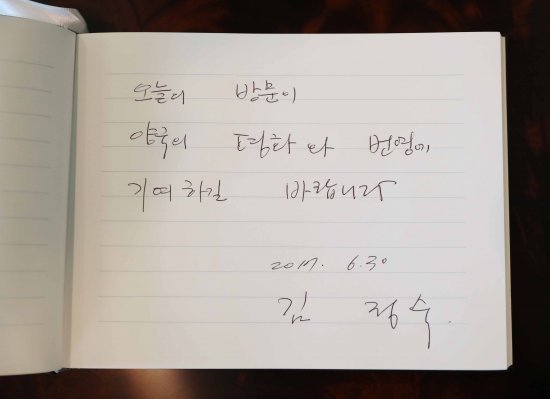 오늘의 방문이
양국의 평화와 번영에
기여하길 바랍니다
2017. 6. 30
김 정숙.